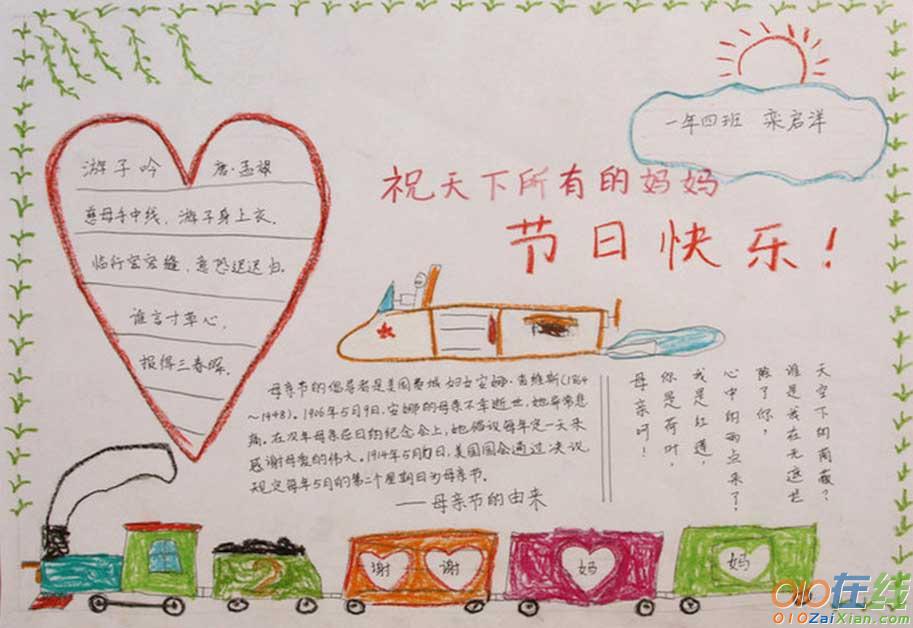 一年四班 栾启洋
祝天下所有的妈妈
节日快乐!
游子吟 唐·孟郊
慈母手中线,游子身上衣。
临行密密缝,意恐迟迟归。
谁言寸草心,
报得三春晖。
母亲节的倡导者是美国费城妇女安娜·吉维斯(1864
~1948)。1906年5月9日,安娜的母亲不幸逝世,她异常悲
痛。在次年母亲忌日的纪念会上,她倡议每年定一天来
感谢母爱的伟大。1914年5月 日,美国国会通过决议
规定每年5月的第二个星期日为母亲节。
——母亲节的由来
母亲呵!
你是荷叶,
我是红莲,
心中的雨点来了,
除了你,
谁是我在无遮拦
天空下的荫蔽?
2
谢 谢 妈 妈
010在线
010ZaiXian.com